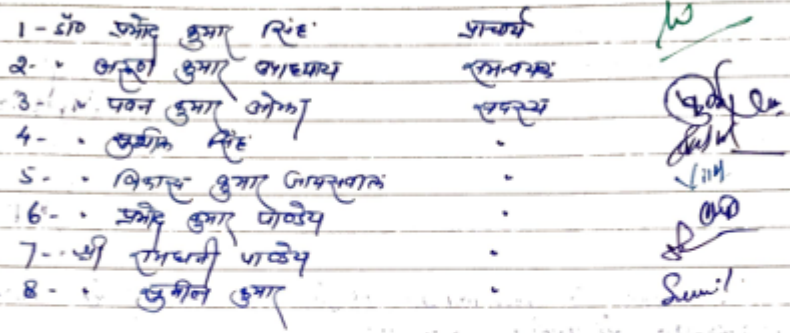 1 - डॉ० प्रमोद कुमार सिंह प्राचार्य
2 - " अरुण कुमार उपाध्याय समन्वयक
3 - " पवन कुमार ओझा सदस्य
4 - " सिंह "
5 - " विकास कुमार जायसवाल "
6 - " प्रमोद कुमार पाण्डेय "
7 - श्री रामधनी पाण्डेय "
8 - " सुनील कुमार " Sunil